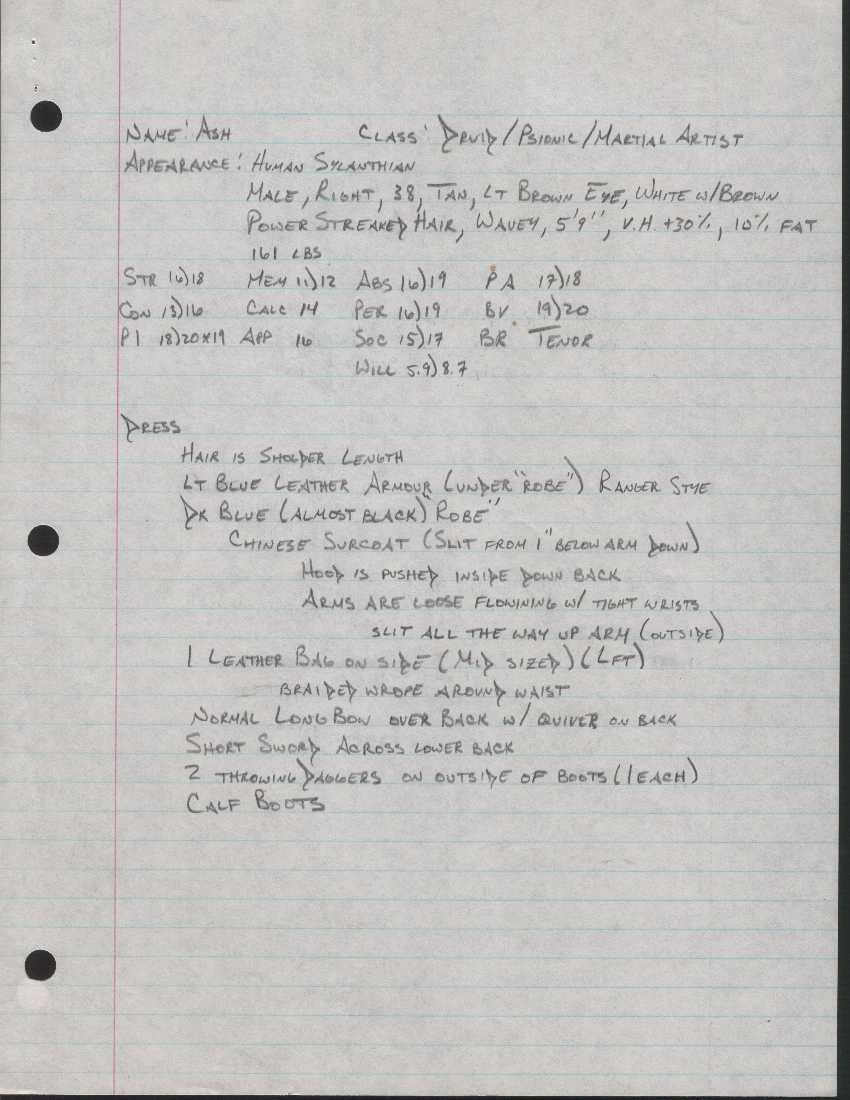 Name: Ash Class: Druid/Psionic/Martial Artist
Appearance: Human Sylanthian
Male, Right, 38, Tan, Lt Brown Eye, White w/Brown
Power Streaked Hair, Wavey, 5'9", V.H. +30%, 10% fat
161 lbs
Str 16)18 Mem 11)12 Abs 16)19 PA 17)18
Con 13)16 Calc 14 Per 16)19 BV 19)20
P1 18)20x19 App 16 Soc 15)17 BR Tenor
Will 5.9)8.7
Dress
Hair is Sholder Length
Lt Blue Leather Armour (under "robe") Ranger Stye
Dk Blue (almost black) "Robe"
Chinese Surcoat (Slit from 1" below arm down)
Hood is pushed inside down back
Arms are loose flowining w/ tight wrists
slit all the way up arm (outside)
1 Leather Bag on side (Mid sized) (Lft)
braided wrope around waist
Normal Long Bow over Back w/ quiver on back
Short Sword Across lower back
2 throwing Daggers on outside of boots (1 each)
Calf Boots